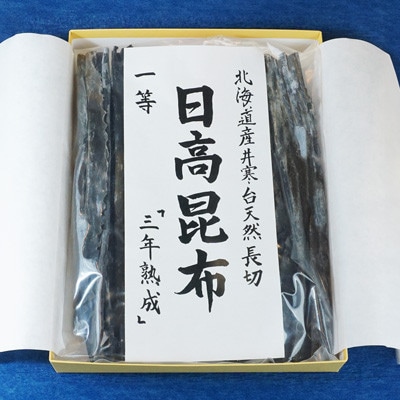 北海道産井寒台天然長切
日高昆布
一等
「三年熟成」